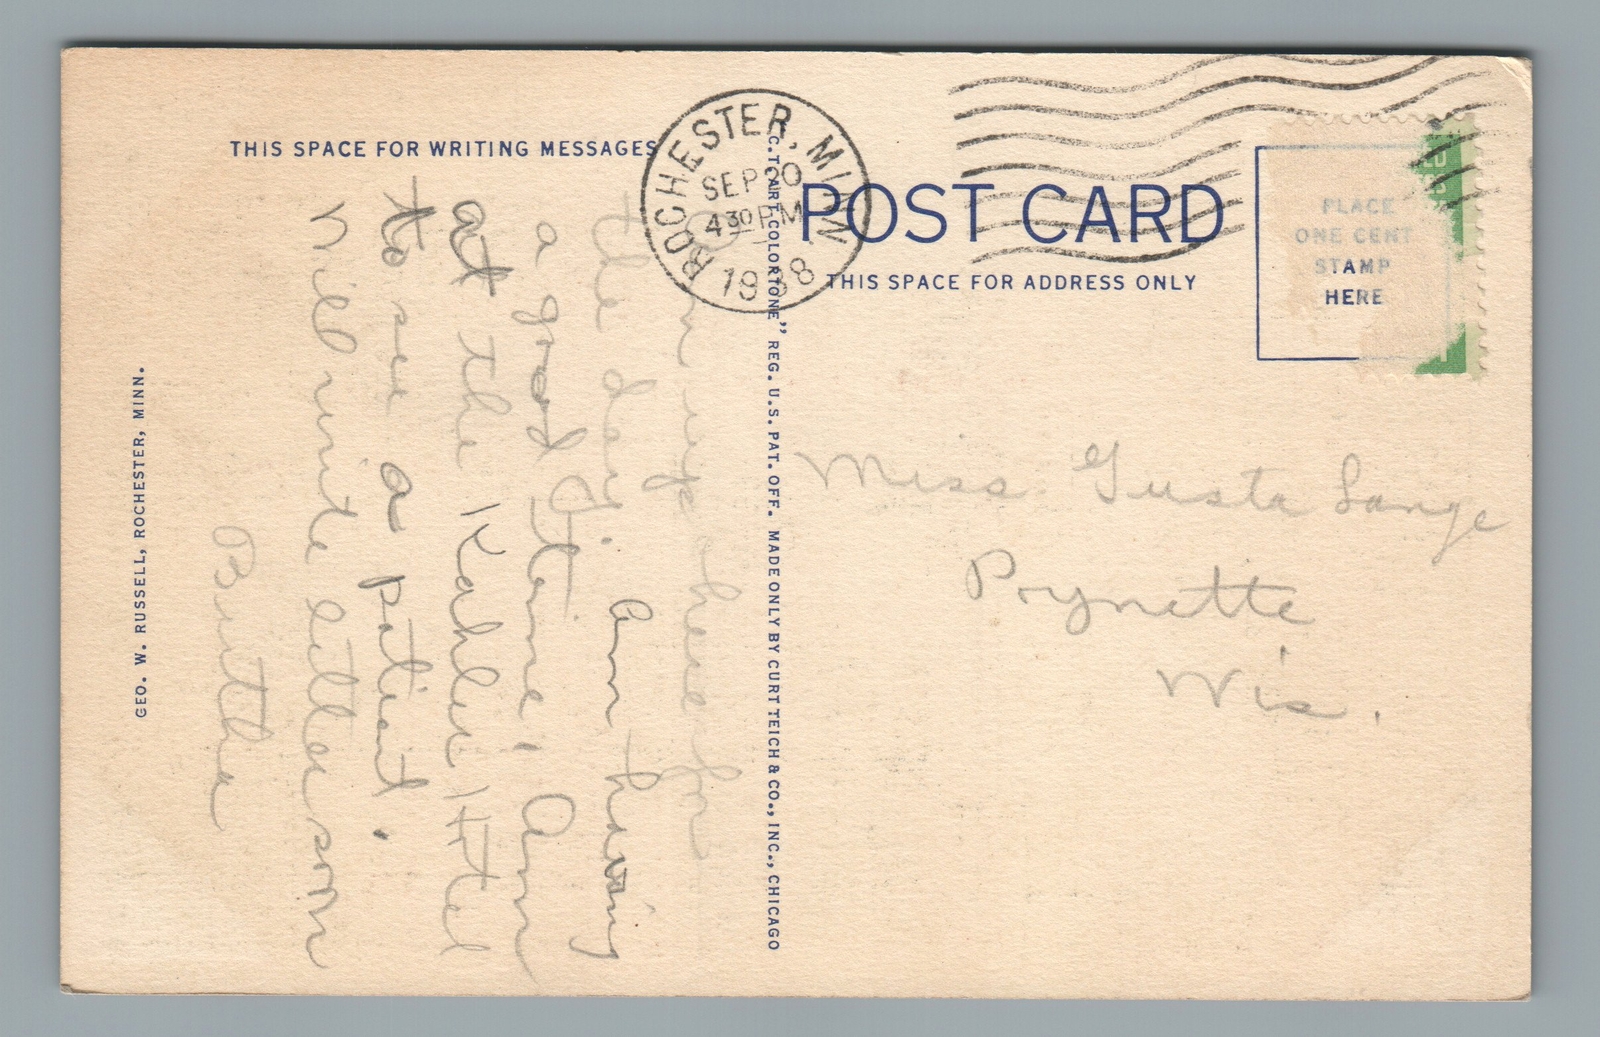 THIS SPACE FOR WRITING MESSAGES
Am up here for
the day. Am having
a good time. Am
at the Kahler Hotel
to see a patient.
Will write letter soon
Bertha
GEO. W. RUSSELL, ROCHESTER, MINN.
"C.T. ART-COLORTONE" REG. U.S. PAT. OFF. MADE ONLY BY CURT TEICH & CO., INC., CHICAGO
ROCHESTER, MINN.
SEP 20
4 30 PM
1938
POST CARD
THIS SPACE FOR ADDRESS ONLY
PLACE
ONE CENT
STAMP
HERE
Miss Gusta Lange
Poynette
Wis.